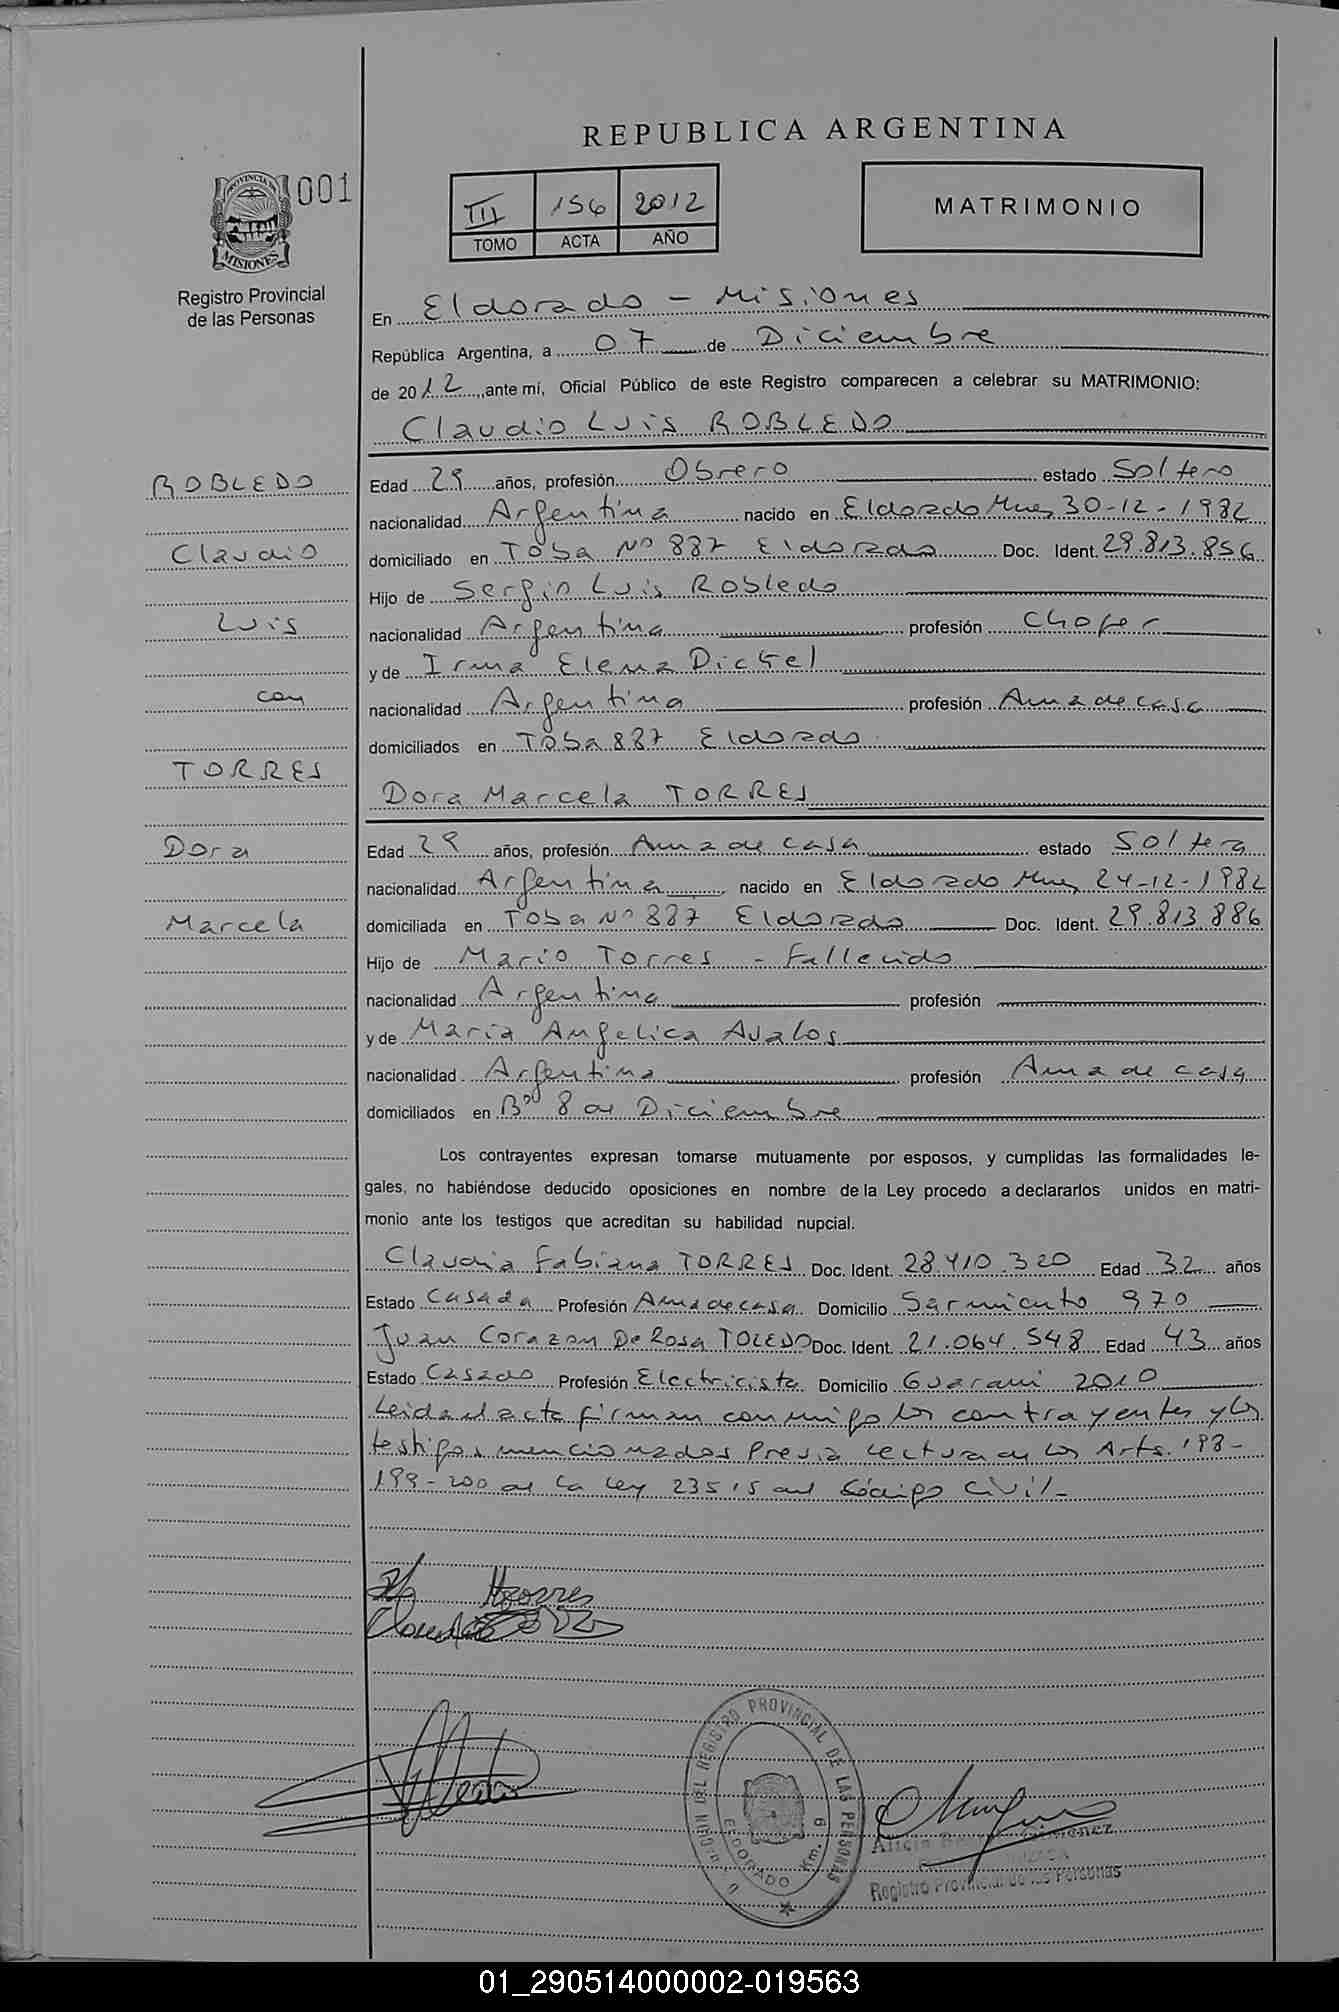 REPUBLICA ARGENTINA
PROVINCIA DE
MISIONES
001
Registro Provincial
de las Personas
III 156 2012
TOMO ACTA AÑO
MATRIMONIO
En Eldorado - Misiones
República Argentina, a 07 de Diciembre
de 2012, ante mí, Oficial Público de este Registro comparecen a celebrar su MATRIMONIO:
Claudio Luis ROBLEDO
ROBLEDO
Claudio
Luis
con
TORRES
Dora
Marcela
Edad 29 años, profesión Obrero estado Soltero
nacionalidad Argentina nacido en Eldorado Mnes 30-12-1982
domiciliado en Toba Nº 887 Eldorado Doc. Ident. 29.813.856
Hijo de Sergio Luis Robledo
nacionalidad Argentina profesión Chofer
y de Irma Elena Dickel
nacionalidad Argentina profesión Ama de casa
domiciliados en Toba 887 Eldorado
Dora Marcela TORRES
Edad 29 años, profesión Ama de casa estado Soltera
nacionalidad Argentina nacido en Eldorado Mnes 24-12-1982
domiciliada en Toba Nº 887 Eldorado Doc. Ident. 29.813.886
Hijo de Mario Torres - Fallecido
nacionalidad Argentina profesión
y de Maria Angelica Avalos
nacionalidad Argentina profesión Ama de casa
domiciliados en Bº 8 de Diciembre
Los contrayentes expresan tomarse mutuamente por esposos, y cumplidas las formalidades le-
gales, no habiéndose deducido oposiciones en nombre de la Ley procedo a declararlos unidos en matri-
monio ante los testigos que acreditan su habilidad nupcial.
Claudia Fabiana TORRES Doc. Ident. 28.410.320 Edad 32 años
Estado Casada Profesión Ama de casa Domicilio Sarmiento 970
Juan Corazon De Rosa TOLEDO Doc. Ident. 21.064.548 Edad 43 años
Estado Casado Profesión Electricista Domicilio Guarani 2010
Leida el acta firman conmigo los contrayentes y los
testigos mencionados Previa lectura de los Arts. 198-
199-200 de la Ley 23515 del Código Civil-
DEL REGISTRO PROVINCIAL DE LAS PERSONAS
ELDORADO Km. 9
Alicia Gimenez
Registro Provincial de las Personas
01_290514000002-019563